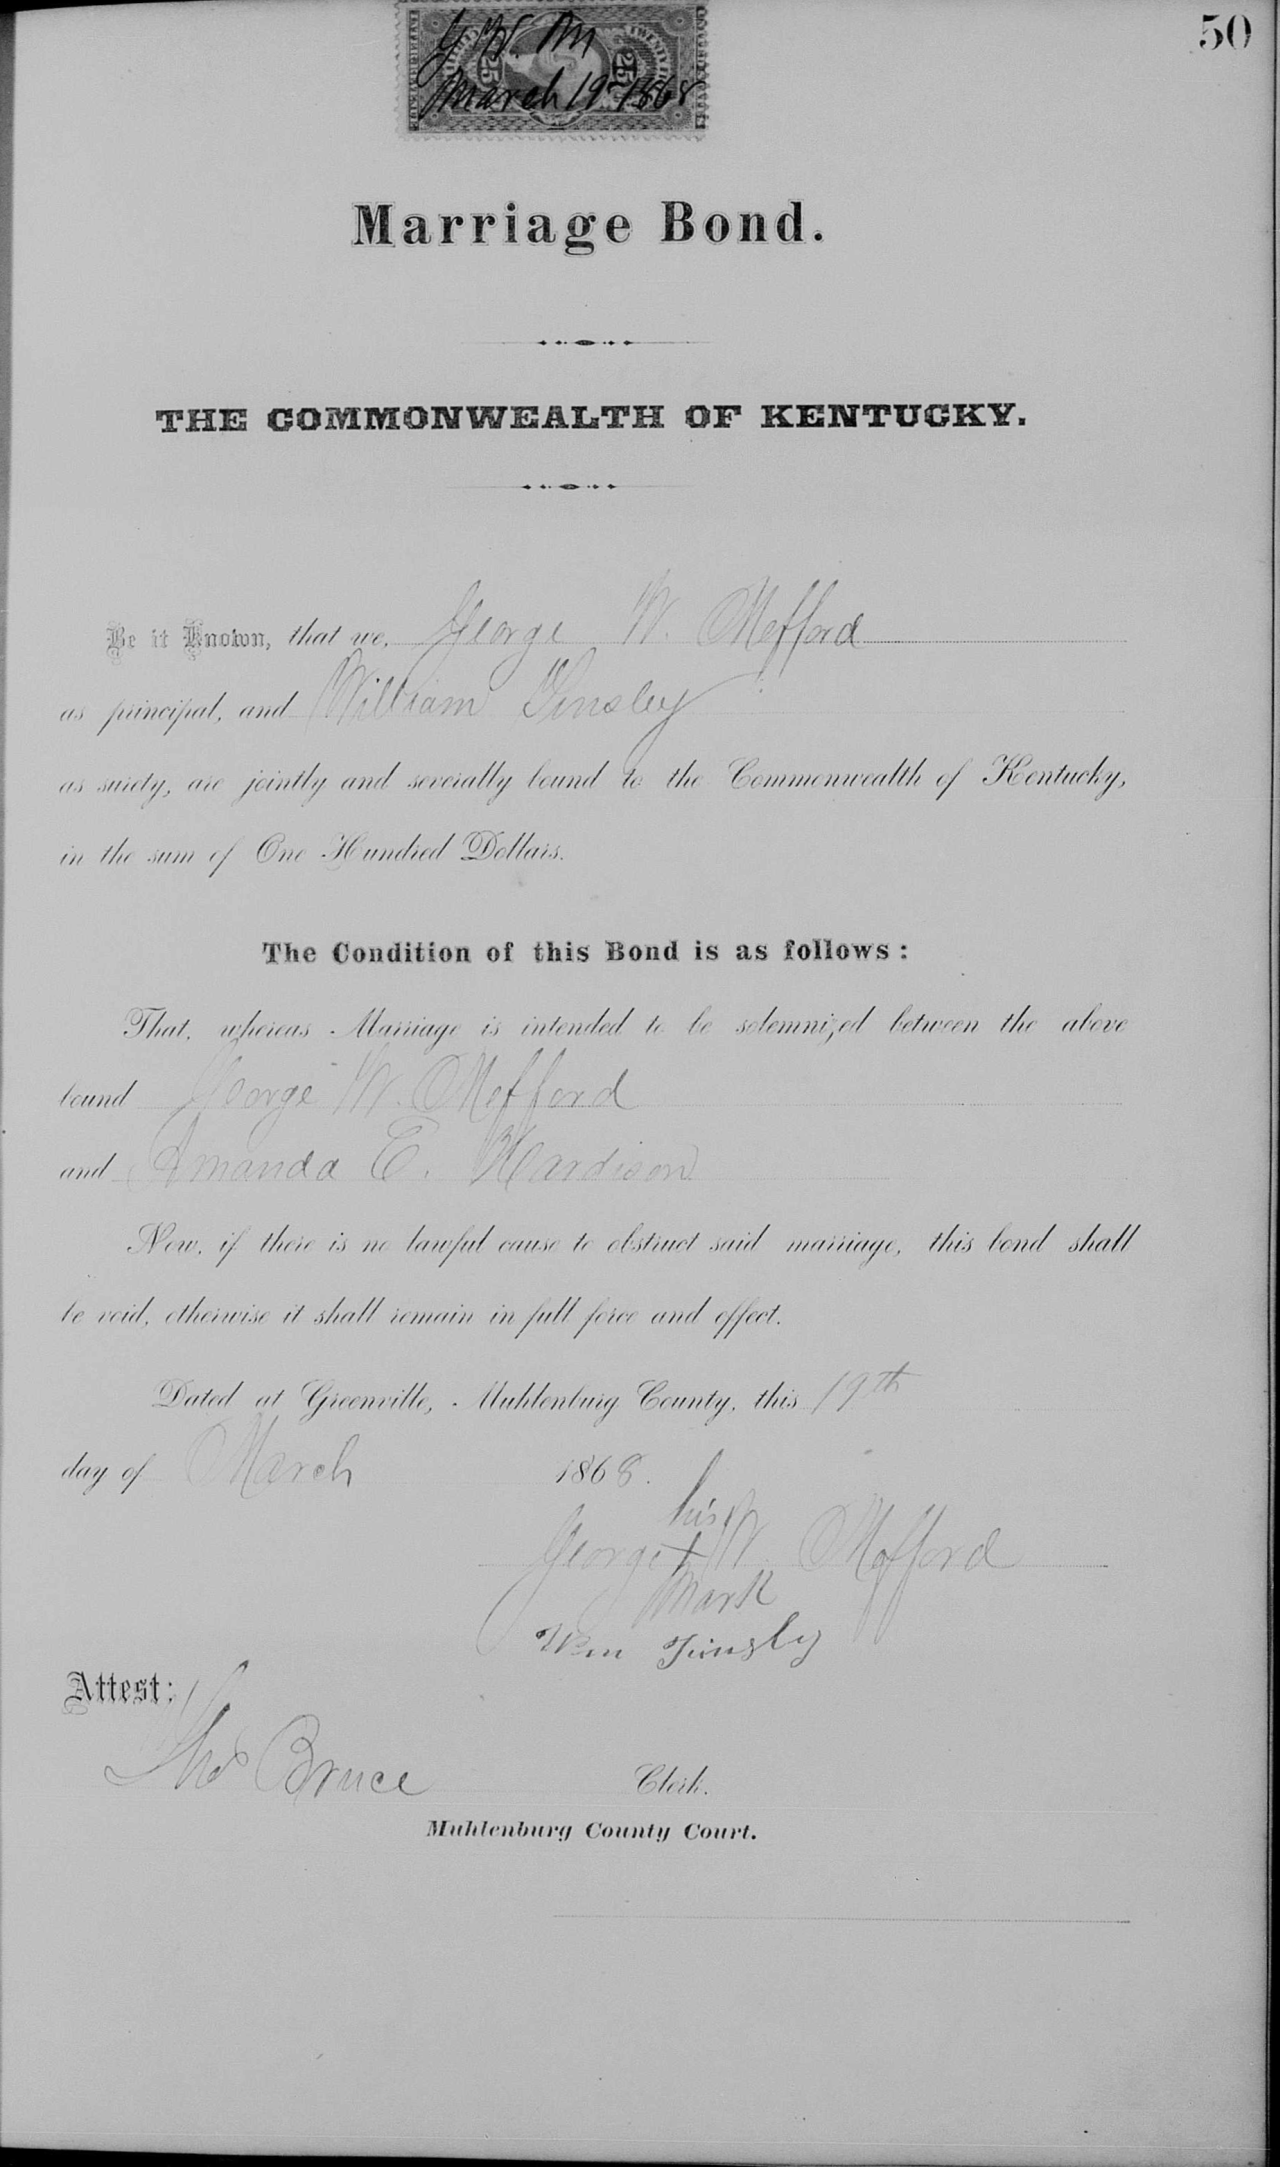 50
G. W. M
March 19 1868
25 25
Marriage Bond.
THE COMMONWEALTH OF KENTUCKY.
Be it Known, that we, George W. Mefford
as principal, and William Tinsley
as surety, are jointly and severally bound to the Commonwealth of Kentucky,
in the sum of One Hundred Dollars.
The Condition of this Bond is as follows:
That, whereas Marriage is intended to be solemnized between the above
bound George W. Mefford
and Amanda E. Hardison
Now, if there is no lawful cause to obstruct said marriage, this bond shall
be void, otherwise it shall remain in full force and effect.
Dated at Greenville, Muhlenburg County, this 19th
day of March 1868.
his
George + W. Mefford
mark
Wm Tinsley
Attest:
Tho Bruce Clerk.
Muhlenburg County Court.